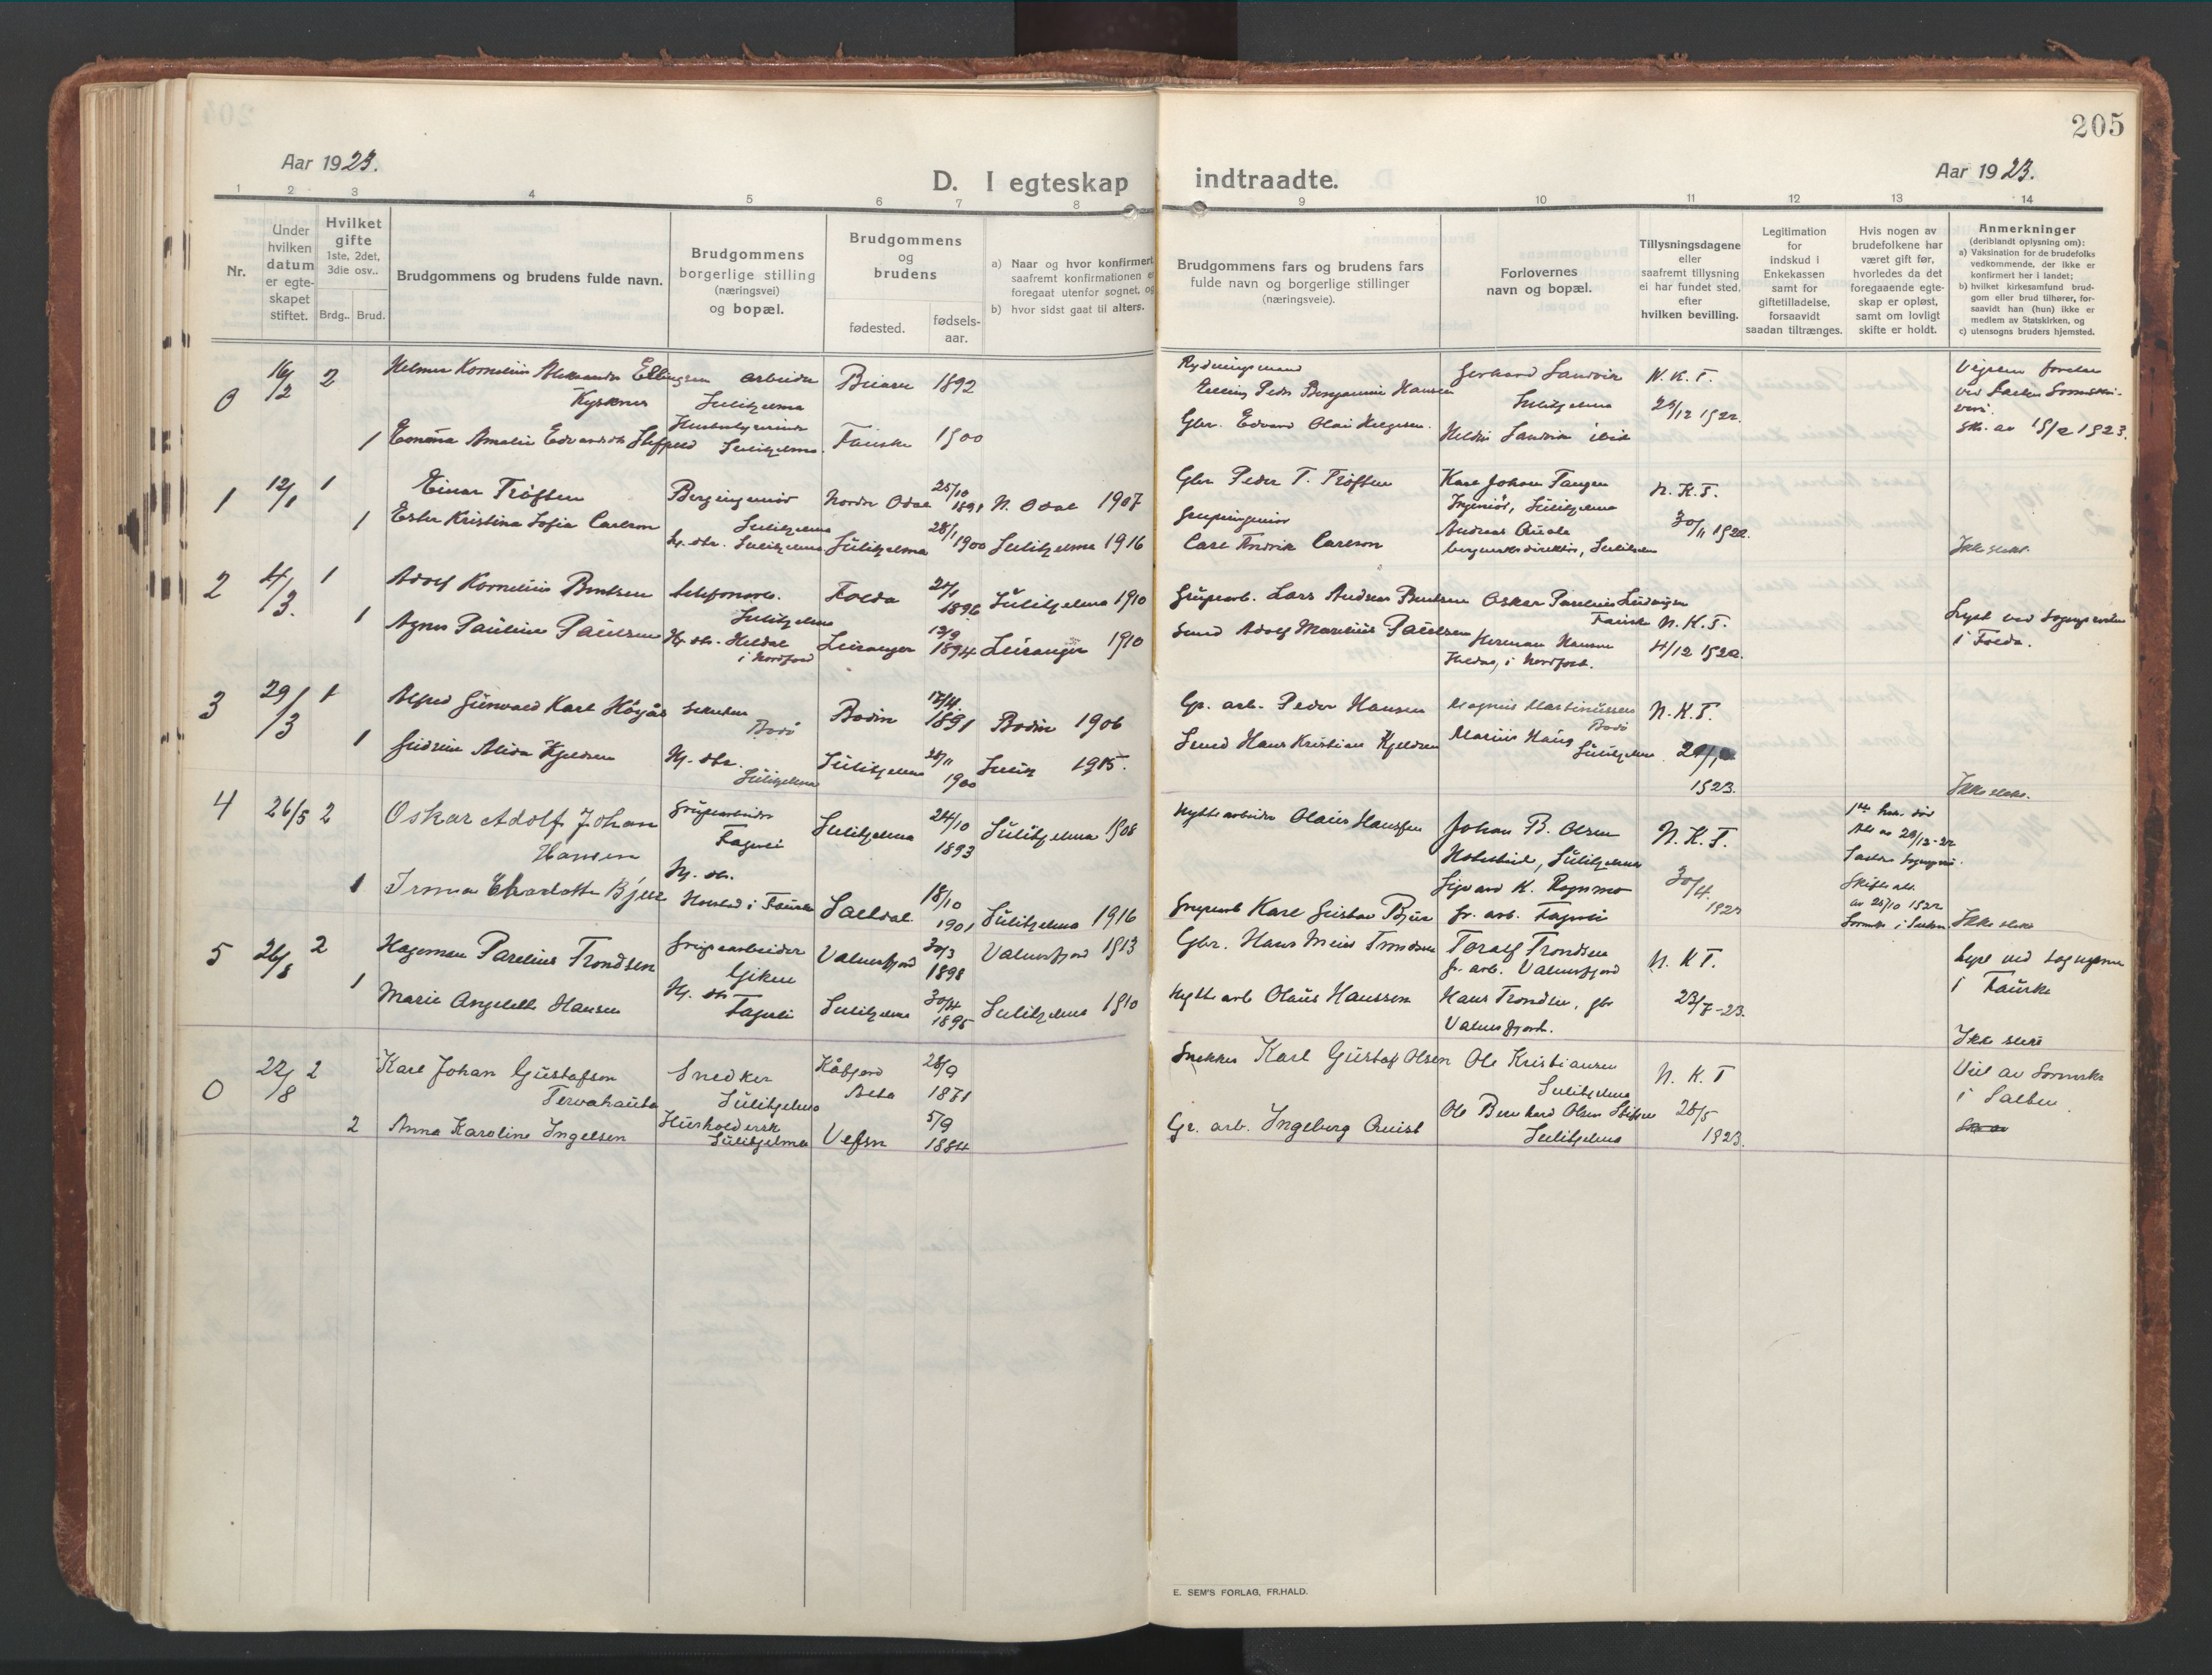 204
205
Aar 1923.
Aar 1923.
D. I egteskap
indtraadte.
1 2 3 4 5 6 7 8
9 10 11 12 13 14
Nr.
Under
hvilken
datum
er egte-
skapet
stiftet.
Hvilket
gifte
1ste, 2det,
3die osv..
Brdg.. Brud.
Brudgommens og brudens fulde navn.
Brudgommens
borgerlige stilling
(næringsvei)
og bopæl.
Brudgommens
og
brudens
fødested.
fødsels-
aar.
a) Naar og hvor konfirmert
saafremt konfirmationen
foregaat utenfor sognet, og
b) hvor sidst gaat til alters.
Brudgommens fars og brudens fars
fulde navn og borgerlige stillinger
(næringsveie).
Forlovernes
navn og bopæl.
Tillysningsdagene
eller
saafremt tillysning
ei har fundet sted,
efter
hvilken bevilling.
Legitimation
for
indskud i
Enkekassen
samt for
giftetilladelse,
forsaavidt
saadan tiltrænges.
Hvis nogen av
brudefolkene har
været gift før,
hvorledes da det
foregaaende egte-
skap er opløst,
samt om lovligt
skifte er holdt.
Anmerkninger
(deriblandt oplysning om):
a) Vaksination for de brudefolks
vedkommende, der ikke er
konfirmert her i landet;
b) hvilket kirkesamfund brud-
gom eller brud tilhører, for-
saavidt han (hun) ikke er
medlem av Statskirken, og
c) utensogns bruders hjemsted.
0 16/2 2 Helmer Kornelius Aleksander Ellingsen arbeider Beiarn 1892
Kysknes Sulitjelma
1 Emma Amalie Edvardsdtr Sulitjelma Fauske 1900
Elling Peder Benjamin Hansen
Gerhard Sandvik N. K. T.
Sulitjelma 29/12 1922.
Gbr. Edvard Olai Helgesen. Sandvik ibid
Vigslen foretat
15/2 1923.
1 12/1 1 Einar Tröften Bergingeniör Nordre Odal 25/10 1891 N. Odal 1907
Sulitjelma
1 Ester Kristina Sofia Carlson Hj. dtr. Sulitjelma Sulitjelma 28/1 1900 Sulitjelma 1916
Gbr Peder T. Tröften Karl Johan Fangen N. K. T.
Ingeniör, Sulitjelma
Grupeingeniör 30/11 1922.
Carl Fredrik Carlson Andreas Quale
bergverksdirektör, Sulitjelma Ikke slekt.
2 4/3. 1 Adolf Kornelius Bentsen Folda 24/1 1896 Sulitjelma 1910
Sulitjelma
1 Agnes Pauline Paulsen Hj. dtr. Heldal Leiranger 12/9 1894 Leiranger 1910
i Nordfjord
Grupearb. Lars Andreas Bentsen Oskar Parelius Ludvigsen
Fauske N. K. T.
Smed Adolf Marelius Paulsen Herman Hansen 4/12 1922.
Heldal, i Nordfjord.
Lyst ved Sognepresten
i Folda.
3 29/3 1 Alfred Gunvald Karl Högås Bodin 17/4. 1891 Bodin 1906
Bodö
1 Gudrun Alida Kjeldsen Hj. dtr. Sulitjelma 28/11 1900 1915.
Sulitjelma
Gr. arb. Peder Hansen Magnus Martinussen N. K. T.
Bodö
Smed Hans Kristian Kjeldsen Marius Haug
Sulitjelma
1923.
Ikke slekt.
4 26/5 2 Oskar Adolf Johan Grupearbeider Sulitjelma 24/10 1893 Sulitjelma 1908
Hansen Fagerli
Hj. dtr.
1 Irma Charlotte Bjur i Fauske Saltdal 18/10 1901 Sulitjelma 1916
Hyttearbeider Olaus Hanssen Johan B. Olsen N. K. T.
Sulitjelma
Sigvard K. Rognmo 30/4
Gruparb Karl Gustav Bjur Gr. arb. Fagerli
Ikke slekt
5 26/8 2 Hagerman Parelius Trondsen Grupearbeider Valnesfjord 30/3 1898 Valnesfjord 1913
Giken
1 Marie Angelette Hansen Hj. dtr Fagerli Sulitjelma 30/4 1895 Sulitjelma 1910
Gbr. Hans Meier Trondsen Toralf Trondsen N. K T.
Gr. arb. Valnesfjord
Hyttearb Olaus Hanssen Hans Trondsen, gbr 23/7-23.
Valnesfjord.
Lyst ved sognepresten
i Fauske
Ikke slekt
0 22/8 2 Karl Johan Gustafson Snedker Kåfjord 28/9
Tervahauta Sulitjelma Alta 1871
2 Anna Karoline Ingelsen Husholdersk Vefsn 5/9 1884
Sulitjelma
Snekker Karl Gustaf Olsen Ole Kristiansen N. K. T
Sulitjelma
Gr. arb. Ingeborg Quist Ole Bernhard Olsen 28/5
Sulitjelma 1923.
Viet av
i Salten.
E. SEM'S FORLAG, FR.HALD.